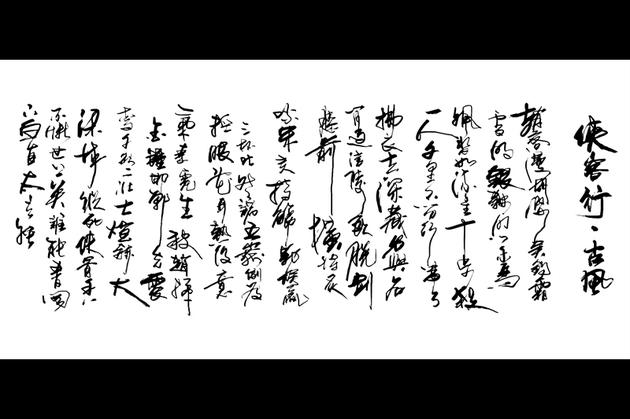 侠客行·古風
趙客漫胡纓吴鈎霜
雪明銀鞍照白馬
颯沓如流星十步殺
一人千里不留行事了
拂衣去深藏身與名
閑過信陵飲脱劍
膝前橫將炙
啖朱亥持觴勸侯嬴
三杯吐然諾五嶽倒為
輕眼花耳熱後意
氣素霓生救趙揮
金錘邯鄲先震
驚千秋二壯士烜赫大
梁城縱死俠骨香
不慚世上英誰能書閣
下白首太玄經